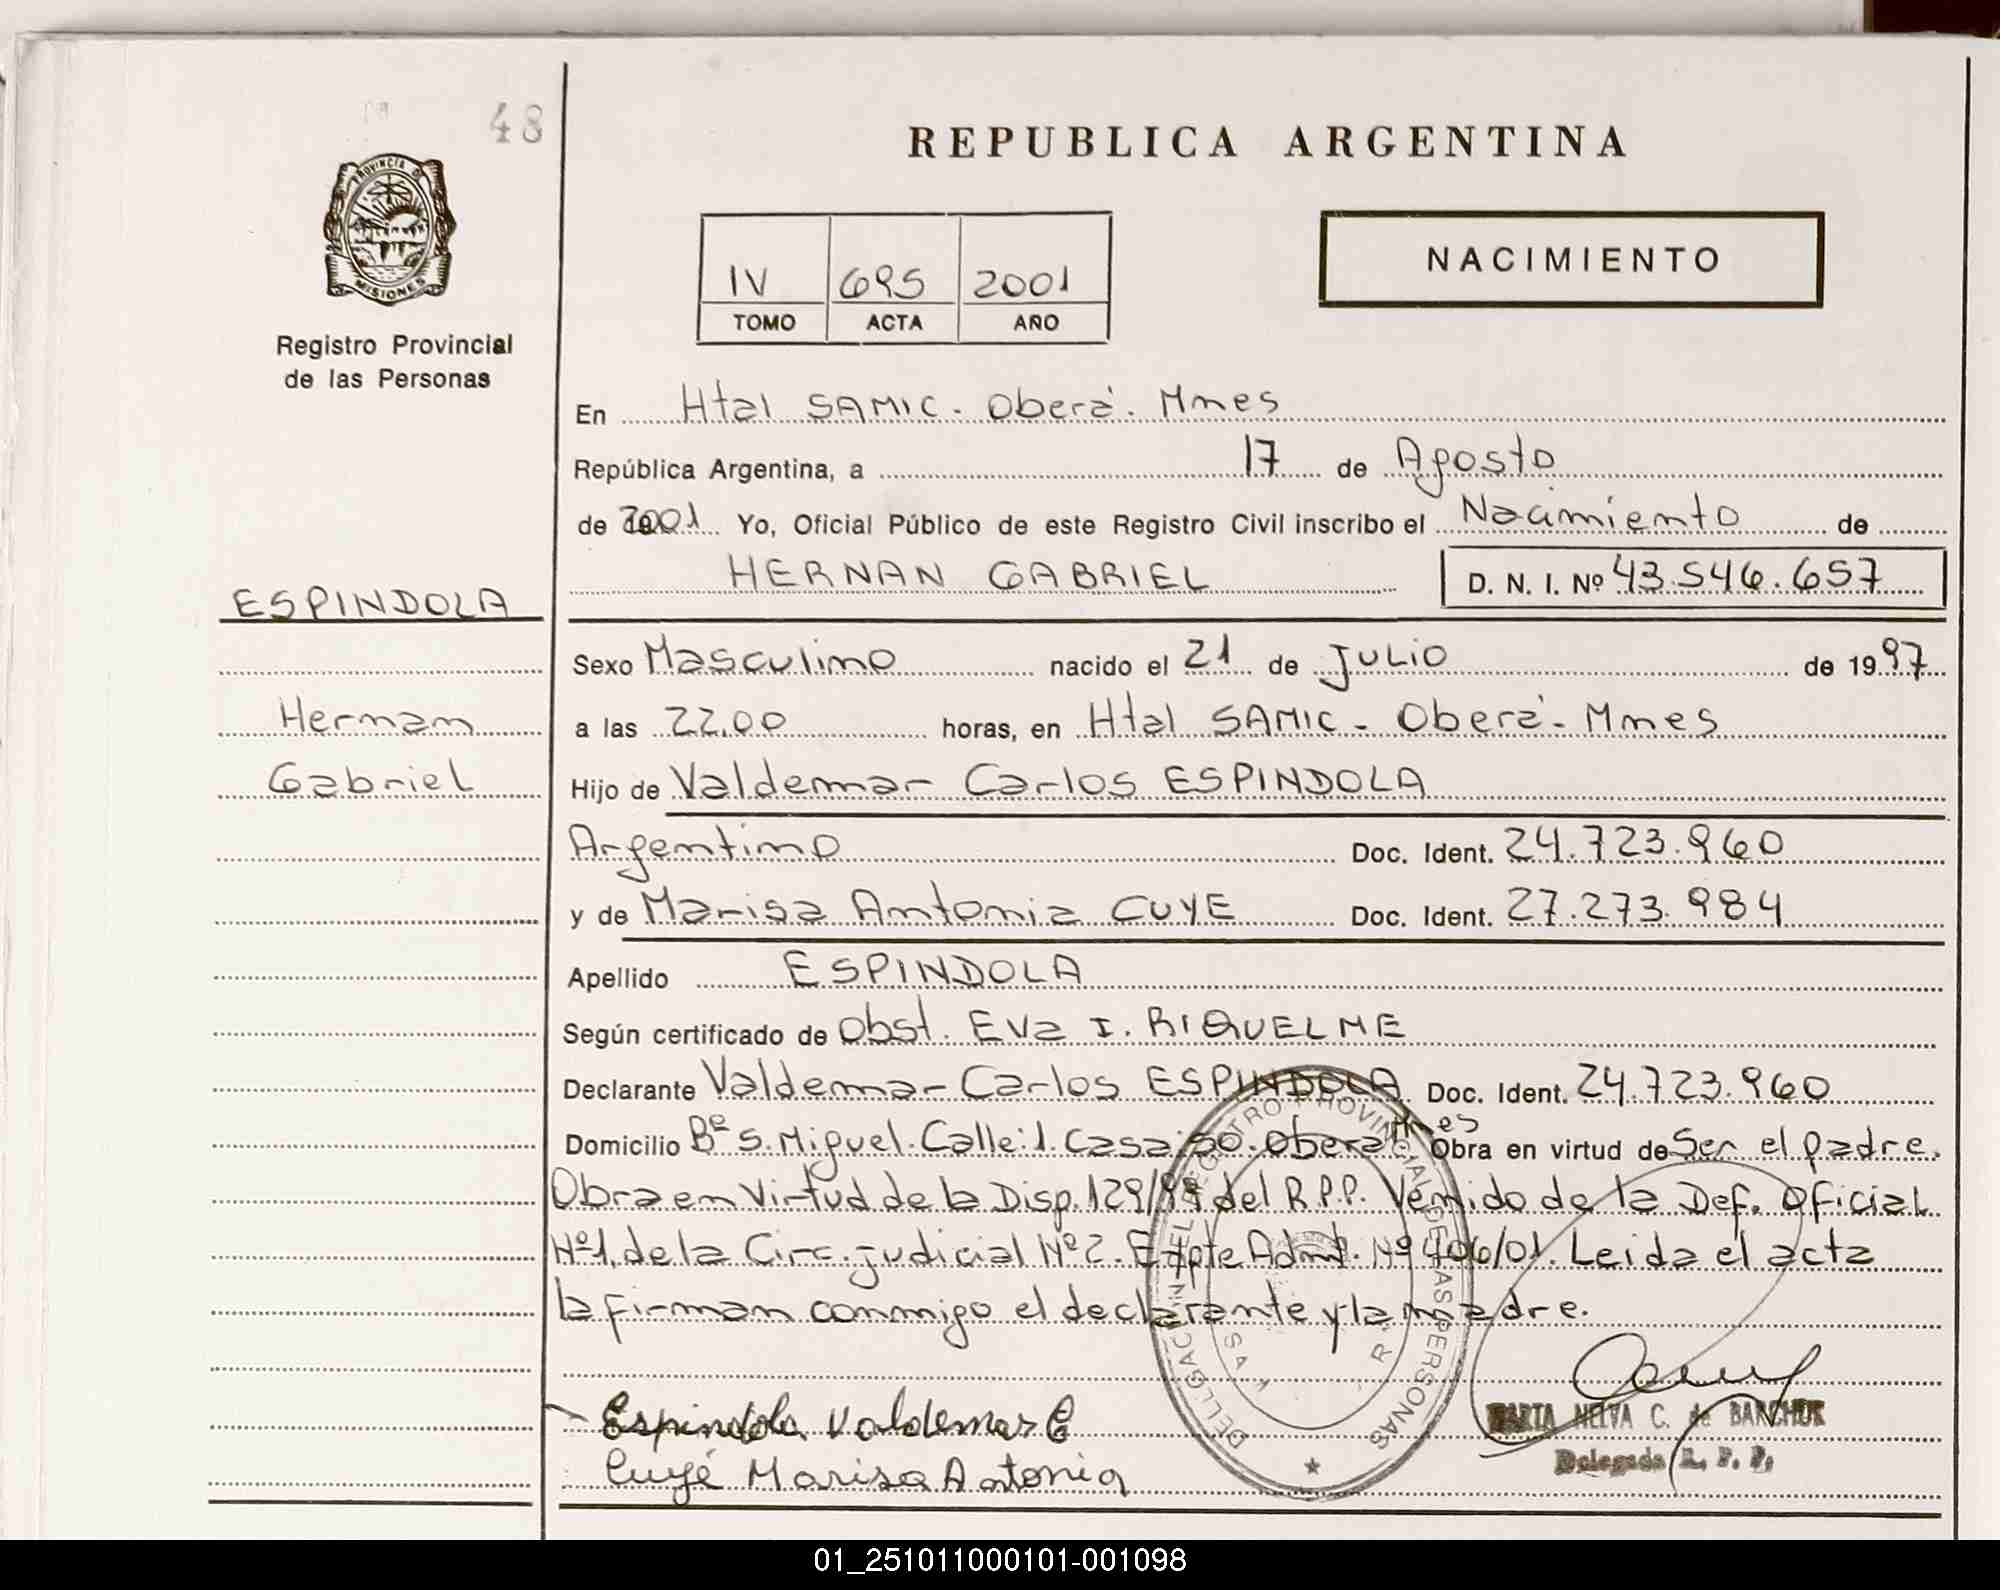 48
PROVINCIA DE
MISIONES
Registro Provincial
de las Personas
REPUBLICA ARGENTINA
IV 695 2001
TOMO ACTA AÑO
NACIMIENTO
En Htal SAMIC - Oberá - Mnes
República Argentina, a 17 de Agosto
de 2001 Yo, Oficial Público de este Registro Civil inscribo el Nacimiento de
HERNAN GABRIEL D. N. I. Nº 43.546.657
ESPINDOLA
Hernan
Gabriel
Sexo Masculino nacido el 21 de JULIO de 1997
a las 22,00 horas, en Htal SAMIC - Oberá - Mnes
Hijo de Valdemar Carlos ESPINDOLA
Argentino Doc. Ident. 24.723.960
y de Marisa Antonia CUYE Doc. Ident. 27.273.984
Apellido ESPINDOLA
Según certificado de Obst. Eva I. RIQUELME
Declarante Valdemar Carlos ESPINDOLA Doc. Ident. 24.723.960
Domicilio Bº S. Miguel. Calle: 1. Casa: 50. Oberá Mnes Obra en virtud de Ser el padre.
Obra en Virtud de la Disp. 129/99 del R.P.P. Venido de la Def. Oficial
Nº1, de la Circ. judicial Nº 2. Expte Admt. Nº 406/01. Leida el acta
la firman conmigo el declarante y la madre.
Espindola Valdemar C
Cuyé Marisa Antonia
REGISTRO PROVINCIAL DE LAS PERSONAS
MARTA NELVA C. de BANCHUK
Delegada R. P. P.
01_251011000101-001098